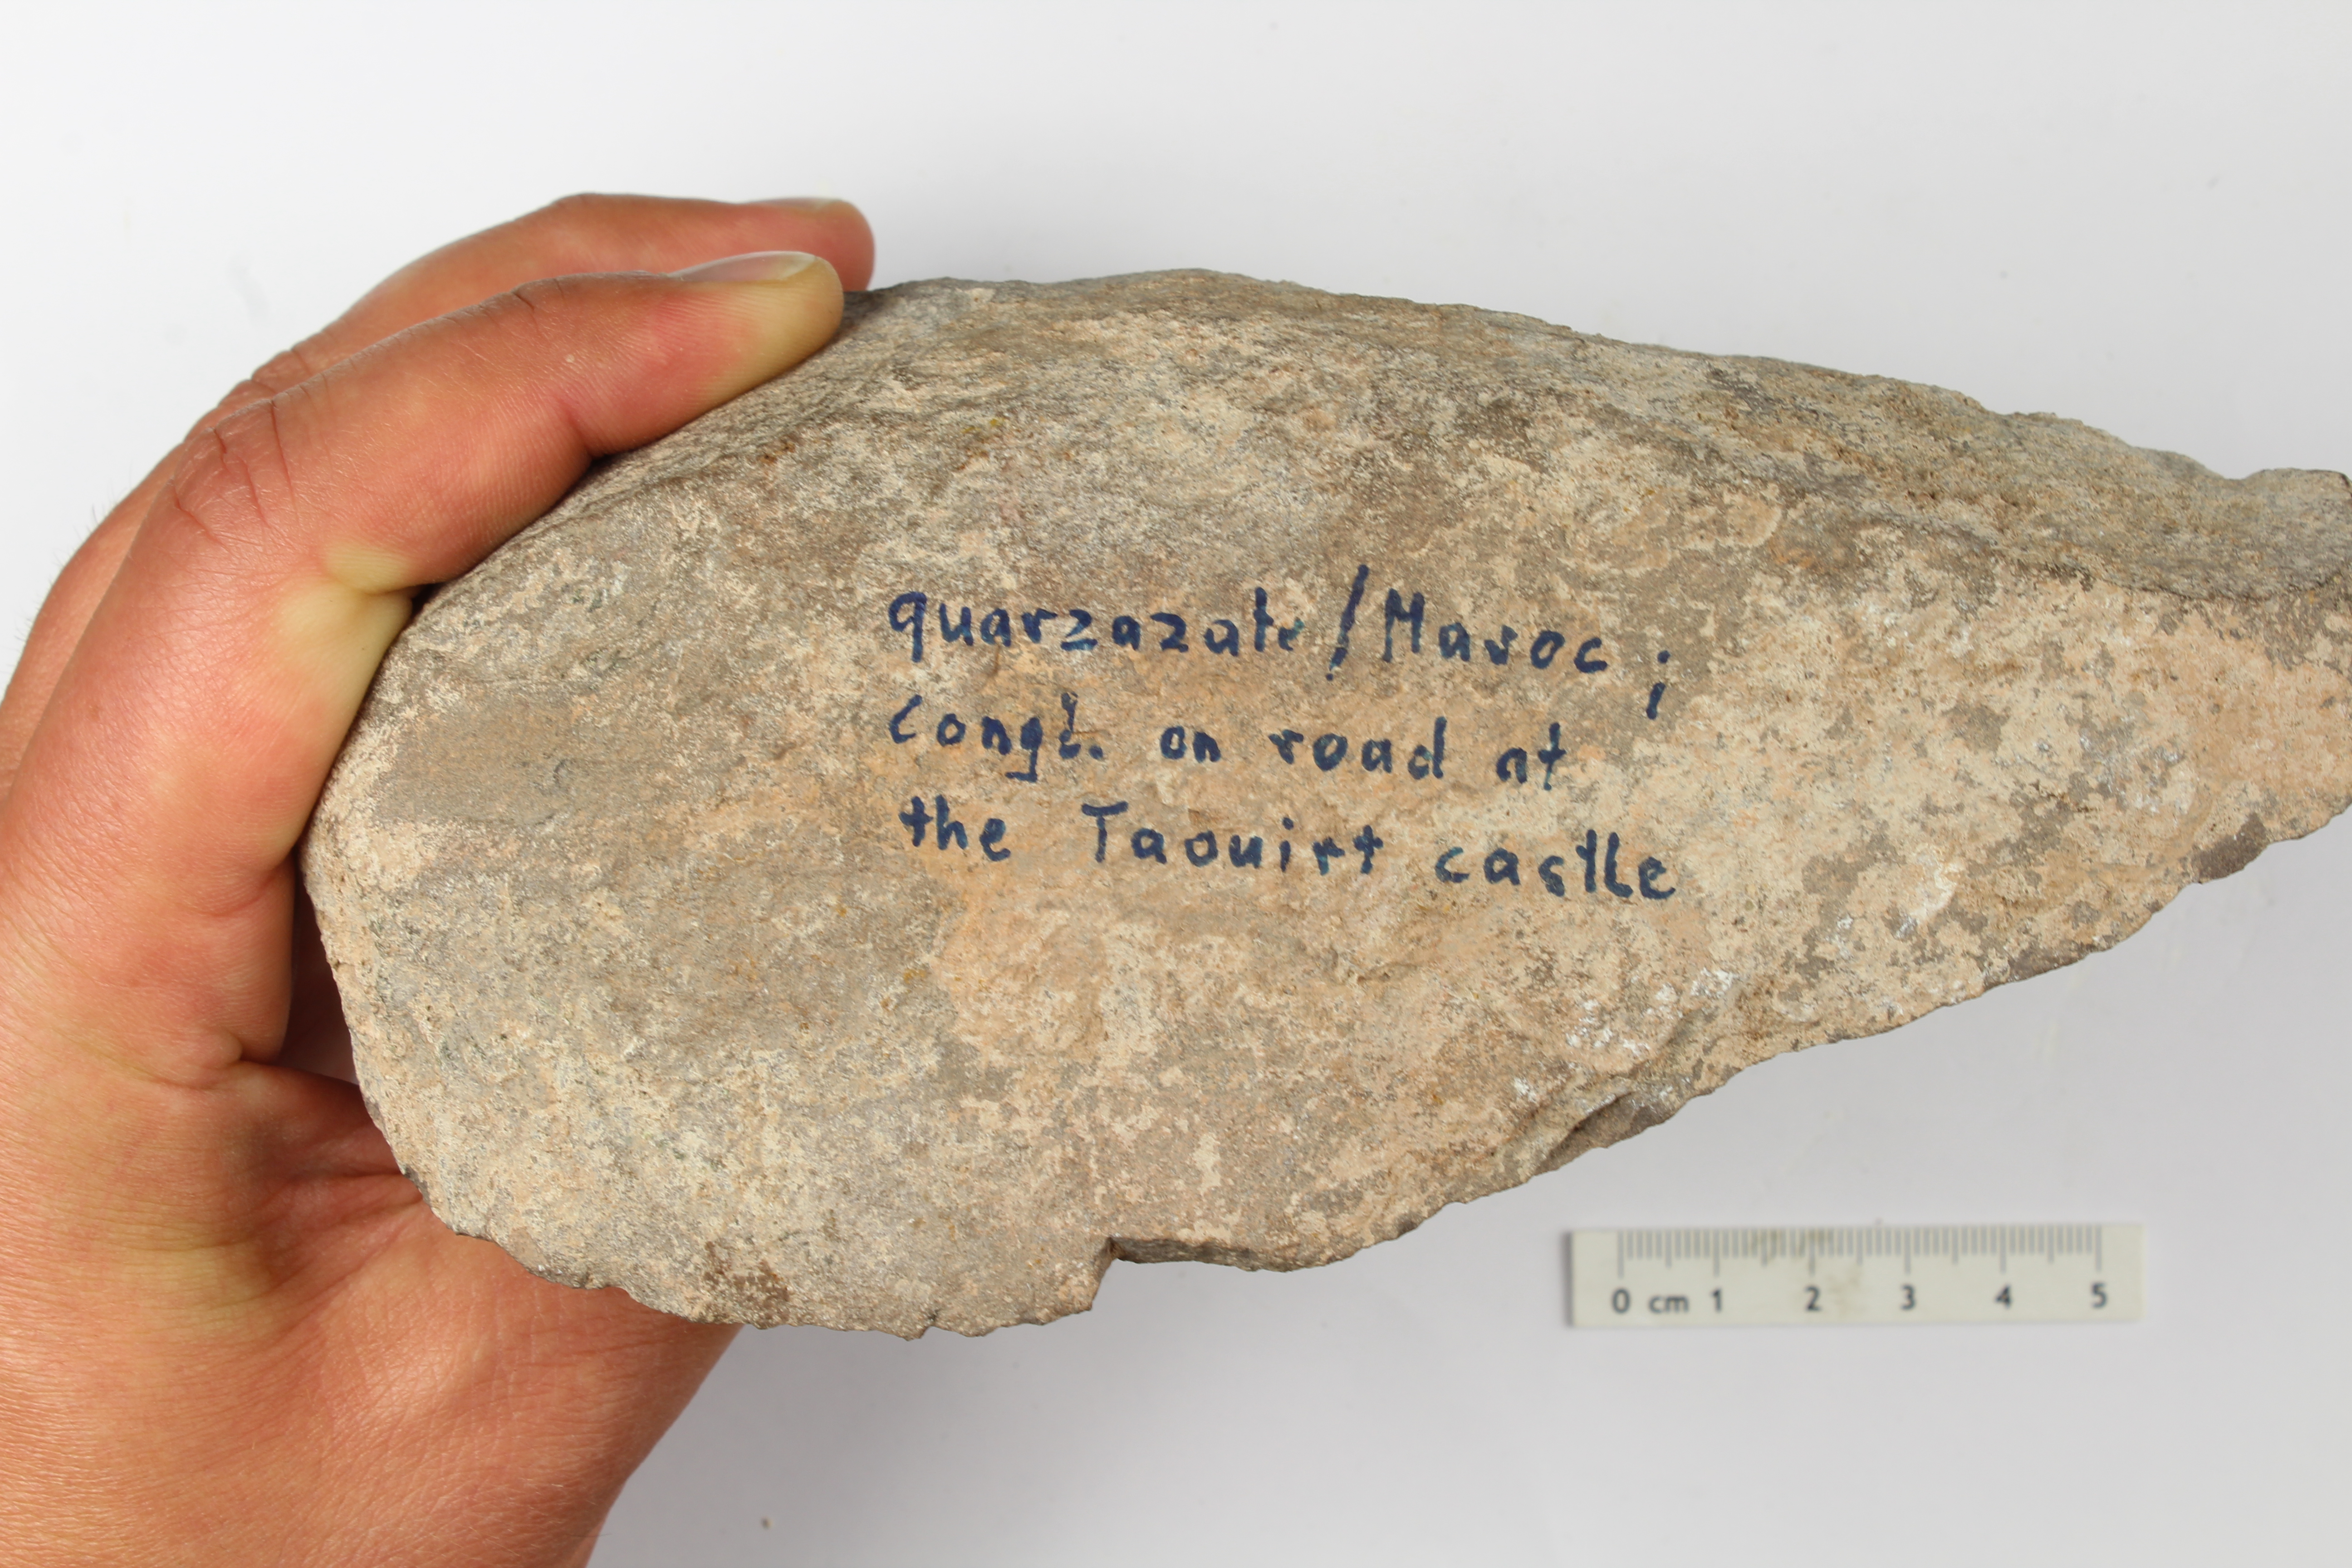 quarzazate / Maroc ;
Congl. on road at
the Taouirt castle
0 cm 1 2 3 4 5